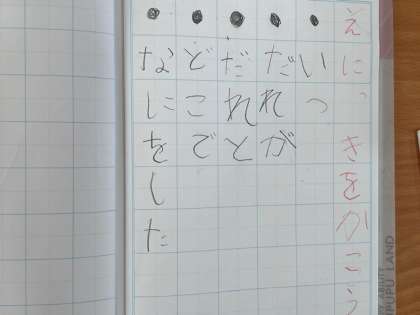 えにっきをかこう
●いつ
●だれが
●だれと
●どこで
●なにをした
LAND